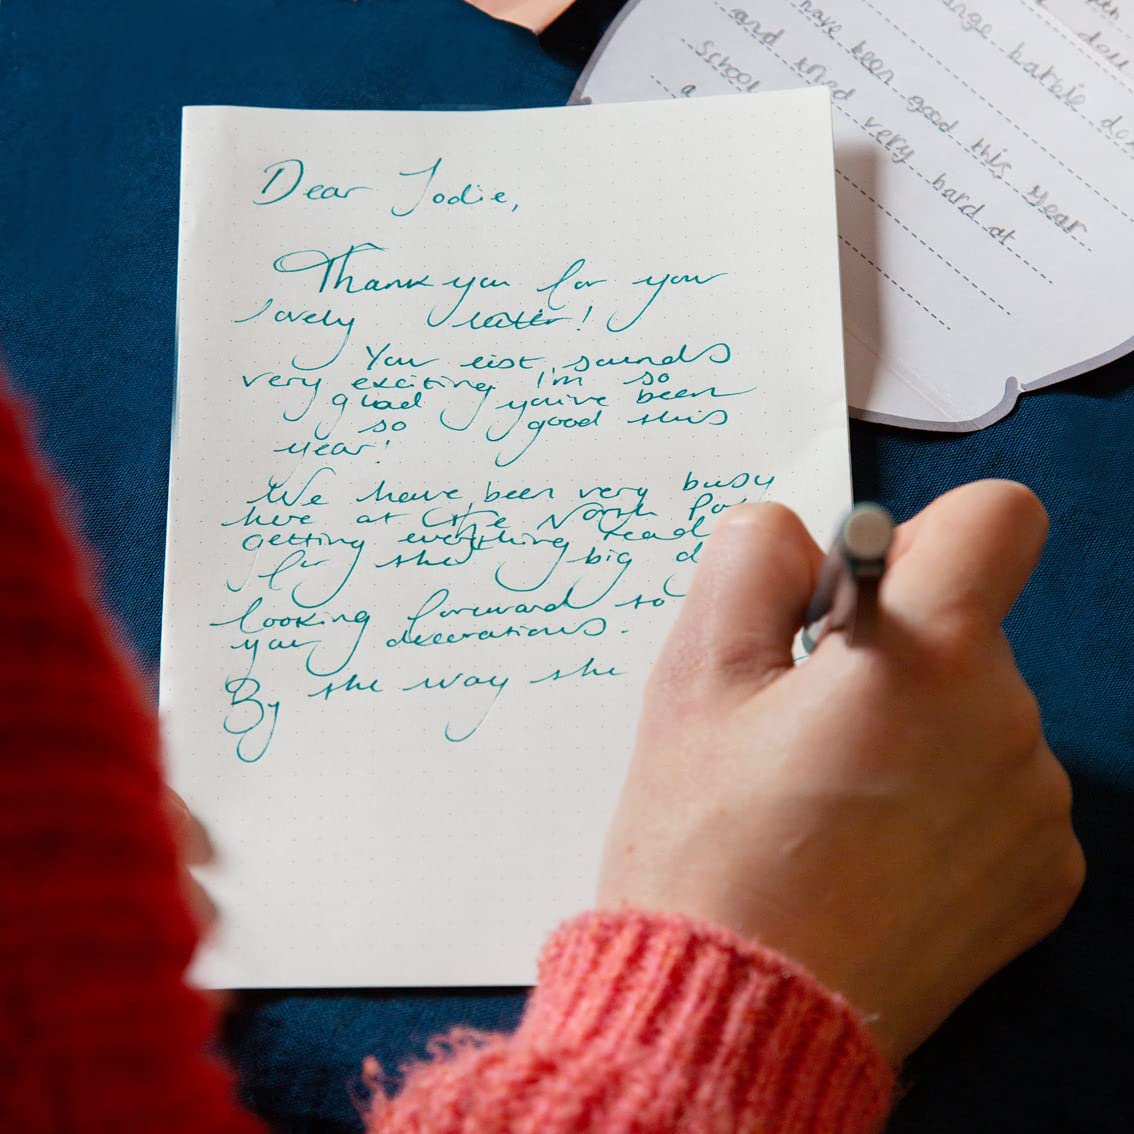 Dear Jodie,
Thank you for your
lovely letter!
Your list sounds
very exciting I'm so
glad you've been
so good this
year!
We have been very busy
here at the North
getting everything
for the big
looking forward to
your decorations.
By the way the
doll
change barbie
have been good this year
and tried very hard at
School
a